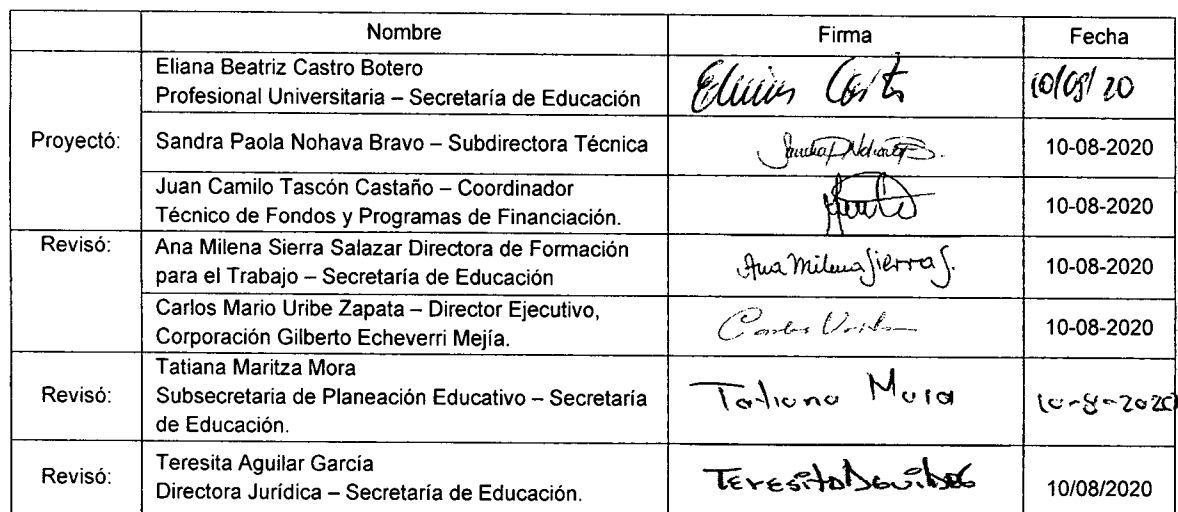 Nombre Firma Fecha
Proyectó:
Eliana Beatriz Castro Botero
Profesional Universitaria – Secretaría de Educación
10/08/20
Sandra Paola Nohava Bravo – Subdirectora Técnica
10-08-2020
Juan Camilo Tascón Castaño – Coordinador
Técnico de Fondos y Programas de Financiación.
10-08-2020
Revisó:
Ana Milena Sierra Salazar Directora de Formación
para el Trabajo – Secretaría de Educación
Ana Milena Sierra S.
10-08-2020
Carlos Mario Uribe Zapata – Director Ejecutivo,
Corporación Gilberto Echeverri Mejía.
Carlos Uribe
10-08-2020
Revisó:
Tatiana Maritza Mora
Subsecretaria de Planeación Educativo – Secretaría
de Educación.
Tatiana Mora
10-8-2020
Revisó:
Teresita Aguilar García
Directora Jurídica – Secretaría de Educación.
Teresita Aguilar G
10/08/2020